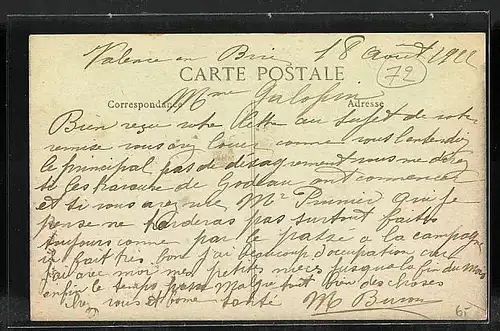 Valence en Brie 18 août 1922
72
CARTE POSTALE
Correspondance Adresse
Mme Galopin
Bien reçu votre lettre au sujet de votre
remise vous avez louer comme vous l'entendez
le principal pas de désagrément vous me direz
si les travaux de Godeau ont commencer
et si vous avez vue Mr Prunier qui je
pense ne tarderas pas surtout faites
toujours comme par le passé a la campagne
il fait très bon j'ai beaucoup d'occupation car
j'ai avec moi mes petits nieces jusqua la fin du mois
enfin le temps passe Malgré tout bien des choses
chez vous et bonne santé M